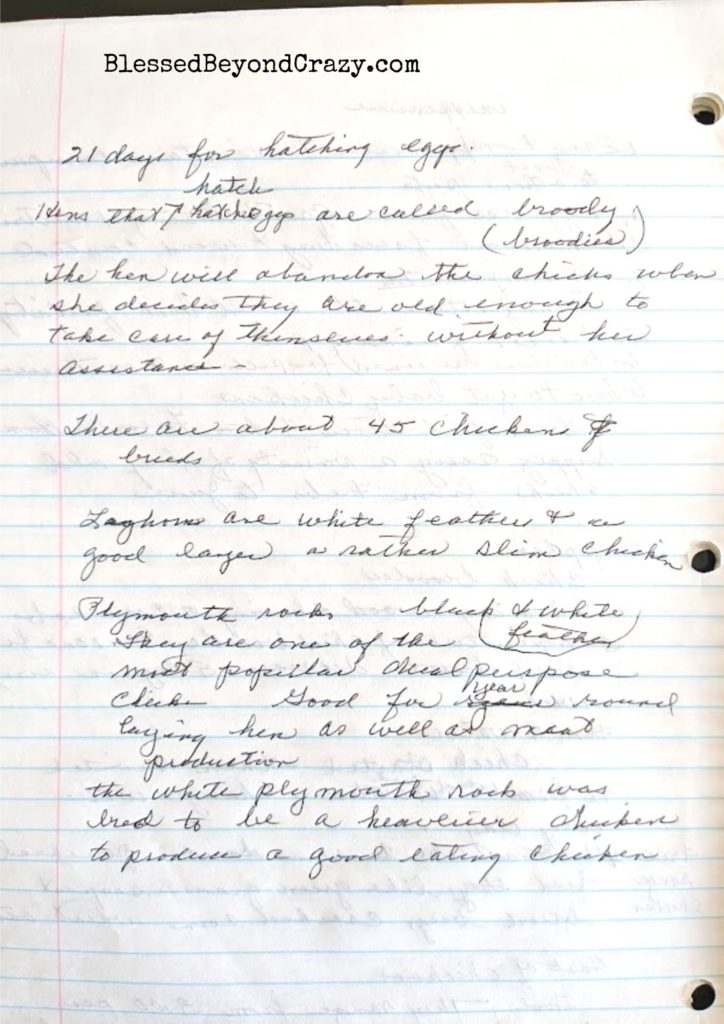 BlessedBeyondCrazy.com
21 days for hatching eggs.
hatch
Hens that hatch eggs are called broody
(broodies)
The hen will abandon the chicks when
she decides they are old enough to
take care of themselves. without her
assistance.
There are about 45 chicken
breeds
Leghorns are white feather & a
good layer a rather slim chicken
Plymouth rocks black & white
They are one of the feather
most popular dual purpose
year
Good for round
laying hen as well as meat
production
the white plymouth rock was
bred to be a heavier chicken
to produce a good eating chicken